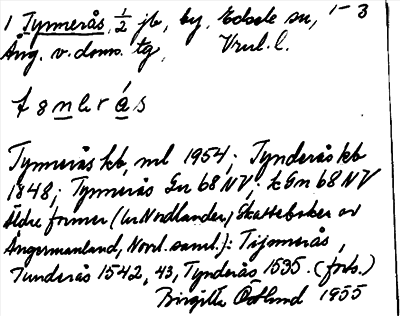 1 Tynnerås, 1/2 jb, by. Edsele sn, 1-3
Ång. v. doms. tg, Vnl. l.
Tynnerås kb, ml 1954; Tynderås kb
1848; Tynnerås Gn 68 NV; k Gn 68 NV
Äldre former (ur Nordlander, Skatteboker ov
Ångermanland, Norrl. saml.): Tijonnerås,
Tunderås 1542, 43, Tynderås 1535. (forts.)
Birgitta Ödlund 1955